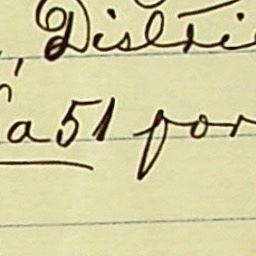 , Distri
a 51 por